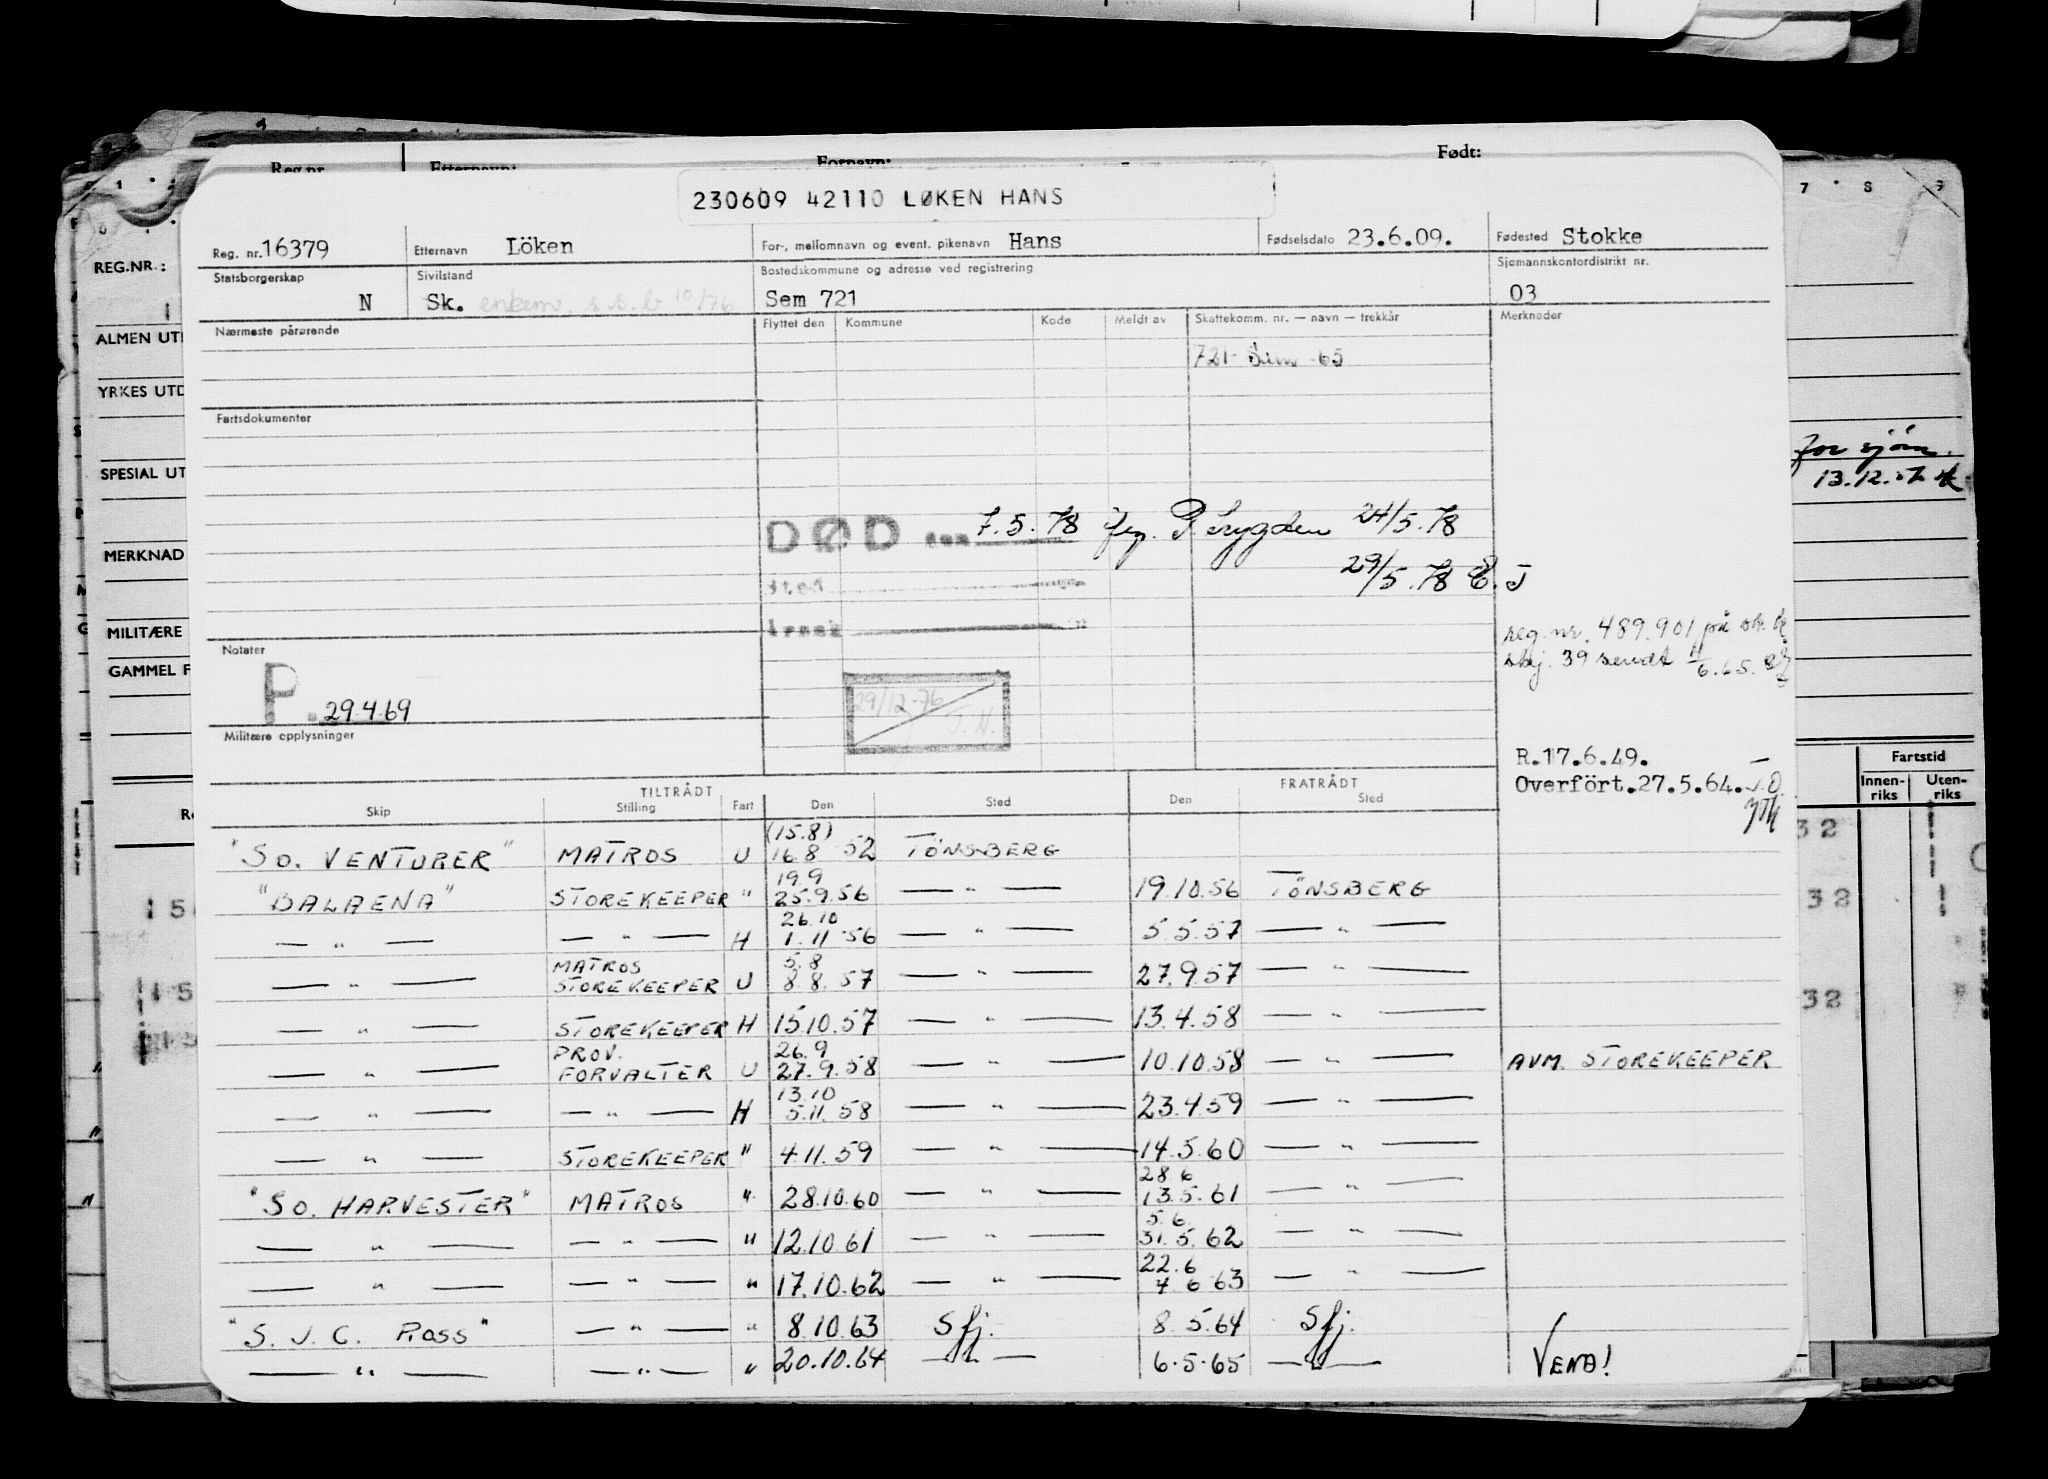 Reg.nr. Etternavn: Fornavn: Født:
230609 42110 LØKEN HANS
Reg. nr. 16379 Etternavn Löken For-, mellomnavn og event. pikenavn Hans Fødselsdato 23.6.09. Fødested Stokke
Statsborgerskap N Sivilstand Sk. enkem. s.s.b 10/76 Bostedskommune og adresse ved registrering Sem 721 Sjømannskontordistrikt nr. 03
Nærmeste pårørende Flyttet den Kommune Kode Meldt av Skattekomm. nr. — navn — trekkår Merknader
721- Sem -65
Fartsdokumenter
DØD den 7.5.78 24/5.78
sted
årsak
29/5.78 E.J
reg.nr. 489.901 på
skj. 39 sendt 11/6.65.
Notater
P. 29.4.69
29/12-76 J.N.
Militære opplysninger
R.17.6.49.
Overført.27.5.64. J.O.
TILTRÅDT FRATRÅDT
Skip Stilling Fart Den Sted Den Sted
(15.8)
"SO. VENTURER" MATROS U 16.8 52 TÖNSBERG
19.9
"BALAENA" STOREKEEPER " 25.9.56 — " — 19.10.56 TÖNSBERG
26.10
— " — — " — H 1.11.56 — " — 5.5.57 — " —
MATROS 5.8
— " — STOREKEEPER U 8.8.57 — " — 27.9.57 — " —
— " — STOREKEEPER H 15.10.57 — " — 13.4.58 — " —
PROV. 26.9
— " — FORVALTER U 27.9.58 — " — 10.10.58 — " — AVM. STOREKEEPER
13.10
— " — — " — H 5.11.58 — " — 23.4.59 — " —
— " — STOREKEEPER " 4.11.59 — " — 14.5.60 — " —
28.6
"SO. HARVESTER" MATROS " 28.10.60 — " — 13.5.61 — " —
5.6
— " — — " — " 12.10.61 — " — 31.5.62 — " —
22.6
— " — — " — " 17.10.62 — " — 4 6 63 — " —
"S. J. C. Ross" — " — " 8.10.63 Sfj. 8.5.64 Sfj.
— " — — " — " 20.10.64 — " — 6.5.65 — " — VEND!
REG.NR.:
ALMEN UT
YRKES UTD
SPESIAL UT
MERKNAD
MILITÆRE
GAMMEL F
for sjøm.
13.12.
Fartstid
Innen-riks Uten-riks
32
32
32